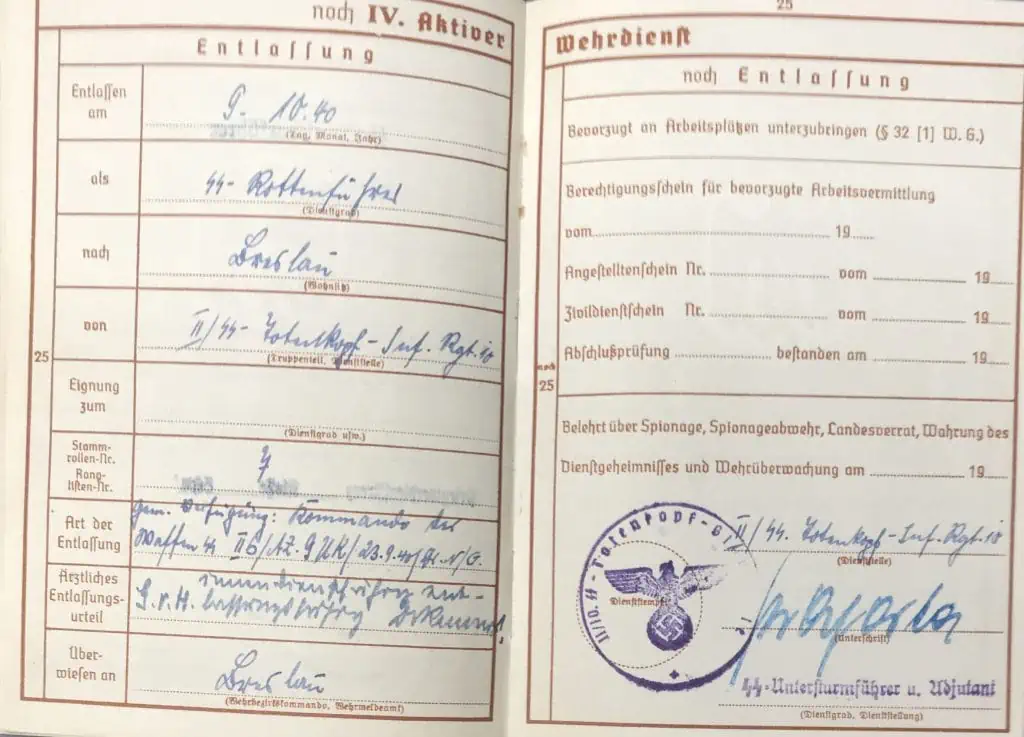 noch IV. Aktiver
Entlassung
Entlassen am
9. 10. 40
(Tag, Monat, Jahr)
als
SS- Rottenführer
(Dienstgrad)
nach
Breslau
(Wohnsitz)
von
II/SS- Totenkopf- Inf. Rgt. 10
(Truppenteil, Dienststelle)
25
Eignung zum
(Dienstgrad usw.)
Stamm-
rollen-Nr.
Rang-
listen-Nr.
7
Art der Entlassung
gem. Verfügung: Kommando der
Waffen SS IIb/Az. 9 UK/23.9.40/
Ärztliches
Entlassungs-
urteil
Über-
wiesen an
Breslau
(Wehrbezirkskommando, Wehrmeldeamt)
25
Wehrdienst
noch Entlassung
Bevorzugt an Arbeitsplätzen unterzubringen (§ 32 [1] W. G.)
Berechtigungsschein für bevorzugte Arbeitsvermittlung
vom 19
Angestelltenschein Nr. vom 19
Zivildienstschein Nr. vom 19
Abschlußprüfung bestanden am 19
noch 25
Belehrt über Spionage, Spionageabwehr, Landesverrat, Wahrung des
Dienstgeheimnisses und Wehrüberwachung am 19
II/SS. Totenkopf- Inf. Rgt. 10
(Dienststelle)
II/10. SS-Totenkopf-
Dienststempel
(Unterschrift)
SS-Untersturmführer u. Adjutant
(Dienstgrad, Dienststellung)